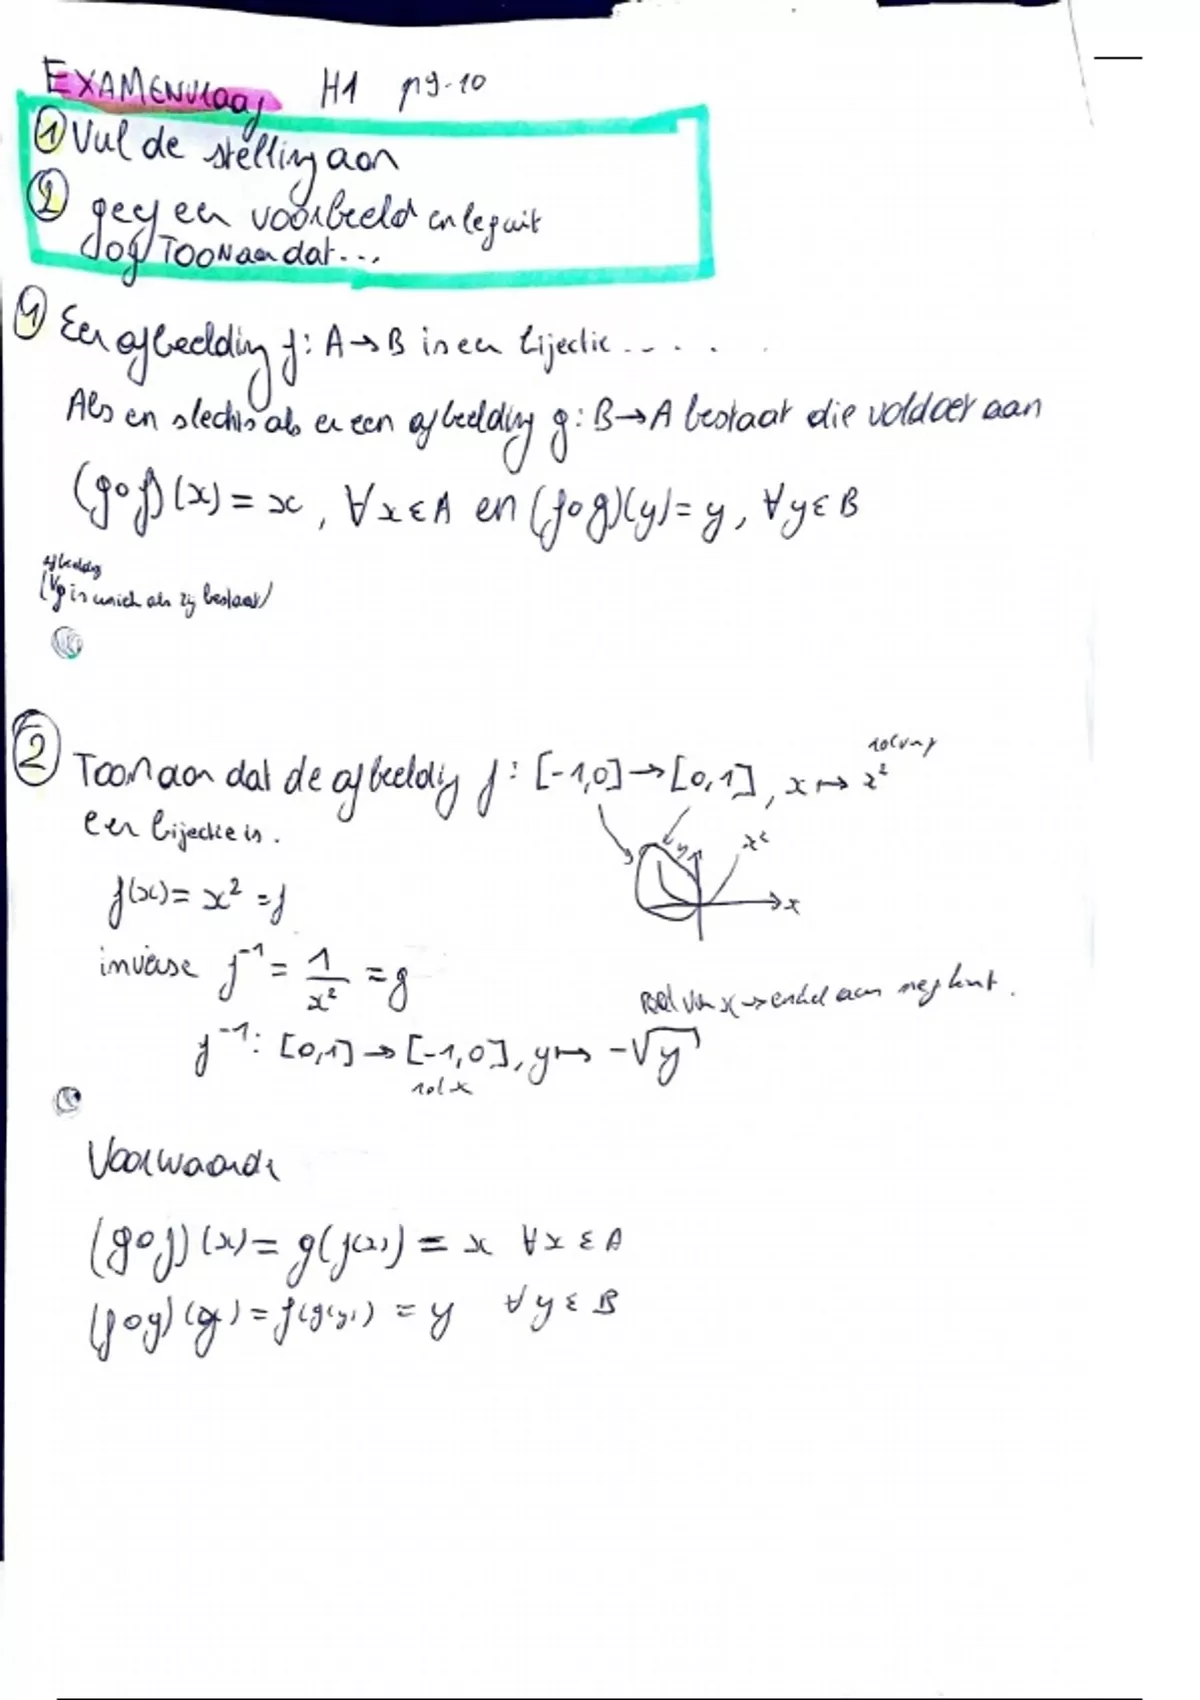 EXAMENVraag H1 pg.10
① Vul de stelling aan
② geef een voorbeeld en leg uit
of TOON aan dat...
① Een afbeelding f: A→B is een bijectie .....
Als en slechts als er een afbeelding g: B→A bestaat die voldoet aan
(g∘f)(x) = x, ∀x∈A en (f∘g)(y) = y, ∀y∈B
afbeelding
(g is uniek als zij bestaat)
② Toon aan dat de afbeeldig f: [-1,0]→[0,1], x↦x²
een bijectie is.
x²
y
x
f(x) = x² = f
inverse f⁻¹ = 1/x² = g
→ enkel aan neg kant.
f⁻¹: [0,1]→[-1,0], y↦ -√y
rol x
Voorwaarde
(g∘f)(x) = g(f(x)) = x ∀x∈A
(f∘g)(y) = f(g(y)) = y ∀y∈B